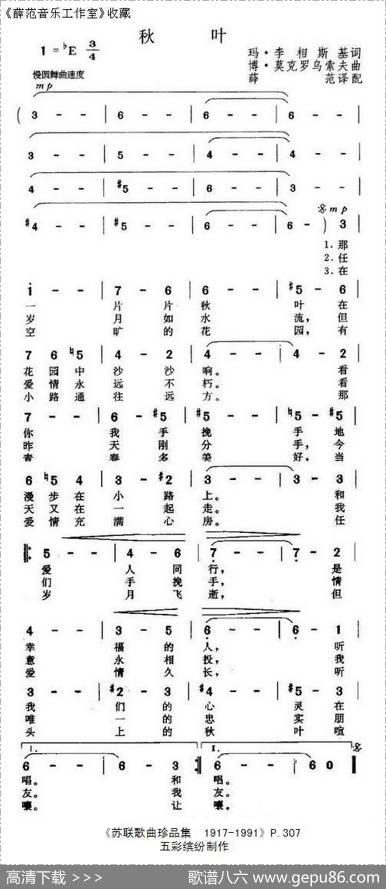 《薛范音乐工作室》收藏
秋 叶
1 = ♭E 3/4
玛·李相斯基词
博·莫克罗乌索夫曲
薛 范译配
慢圆舞曲速度
mp
( 3 - - | 6 - - | 6 - - | 6 - - |
3 - - | 5 - - | 4 - - | 4 - - |
4 - - | #5 - - | 6 - - | 3 - - |
#4 - - | #5 - - | 6 - - | 6 - ) 3 |
mp
1.那
2.任
3.在
1 - 7 | 6 - 6 | 6 - - | #5 - 6 |
一 片 片 秋 叶 在
岁 月 如 水 流，但
空 旷 的 花 园，有
7 6 ♮5 | 4 - 2 | 4 - - | 4 - 2 |
花 园 中 沙 沙 响。 看
爱 情 永 远 不 朽。 看
小 路 通 往 远 方。 那
7 - - | 6 - #5 | #5 - ♮5 | #5 - ♮5 |
你 我 手 挽 手 地
昨 天 刚 分 手，今
青 春 多 美 好。当
6 ♮5 4 | 3 - #2 | 3 - - | 3 - 3 |
漫 步 在 小 路 上。 和
天 又 在 一 起 走。 我
爱 情 在 充 满 心 房。 任
5 - - | 4 - 6 | 7 - - | 7 - 2 |
爱 人 同 行， 是
们 手 挽 手， 情
岁 月 飞 逝， 但
4 - - | 3 - 5 | 6 - - | 6 - 1 |
幸 福 的 人， 听
意 永 相 投， 我
爱 情 久 长， 听
3 - - | #2 - 3 | 4 - 3 | #5 - 3 |
我 们 的 心 灵 在
唯 一 的 忠 实 朋
头 上 的 秋 叶 喧
1. 2.
6 - - | 6 - 3 :| 6 - - | 6 0 ‖
唱。 和 唱。
友。 我 友。
嚷。 让 嚷。
《苏联歌曲珍品集 1917-1991》P.307
五彩缤纷制作
高清下载 >>> 歌谱八六 www.gepu86.com